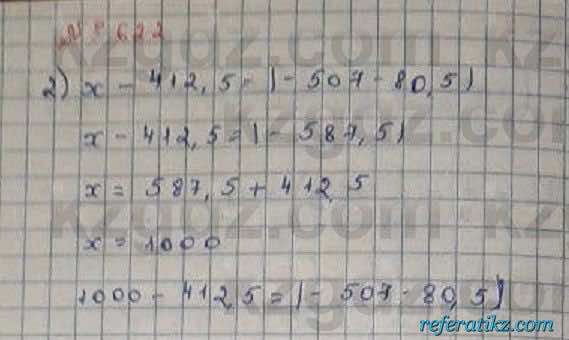 № 622
2) x - 412,5 = |- 507 - 80,5|
x - 412,5 = |- 587,5|
x = 587,5 + 412,5
x = 1000
1000 - 412,5 = |- 507 - 80,5|
referatikz.com